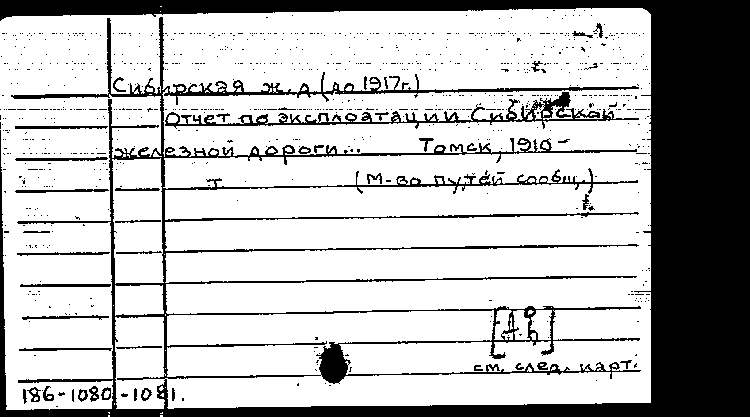 Сибирская ж. д (до 1917г.)
Отчет по эксплоатации Сибирской
железной дороги... Томск, 1910-
т (М-во путей сообщ.)
см. след. карт.
186-1080-1081.